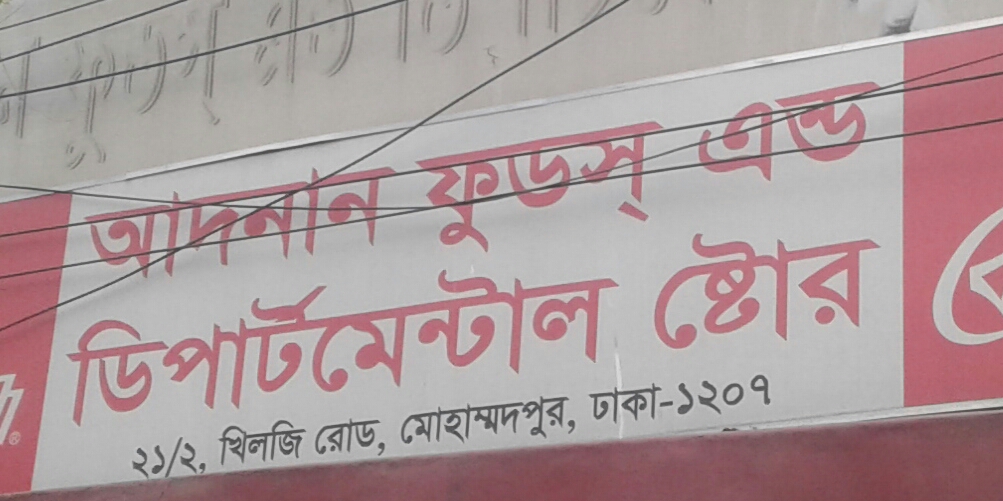 আদনান ফুডস্ এন্ড
ডিপার্টমেন্টাল ষ্টোর
২১/২, খিলজি রোড, মোহাম্মদপুর, ঢাকা-১২০৭